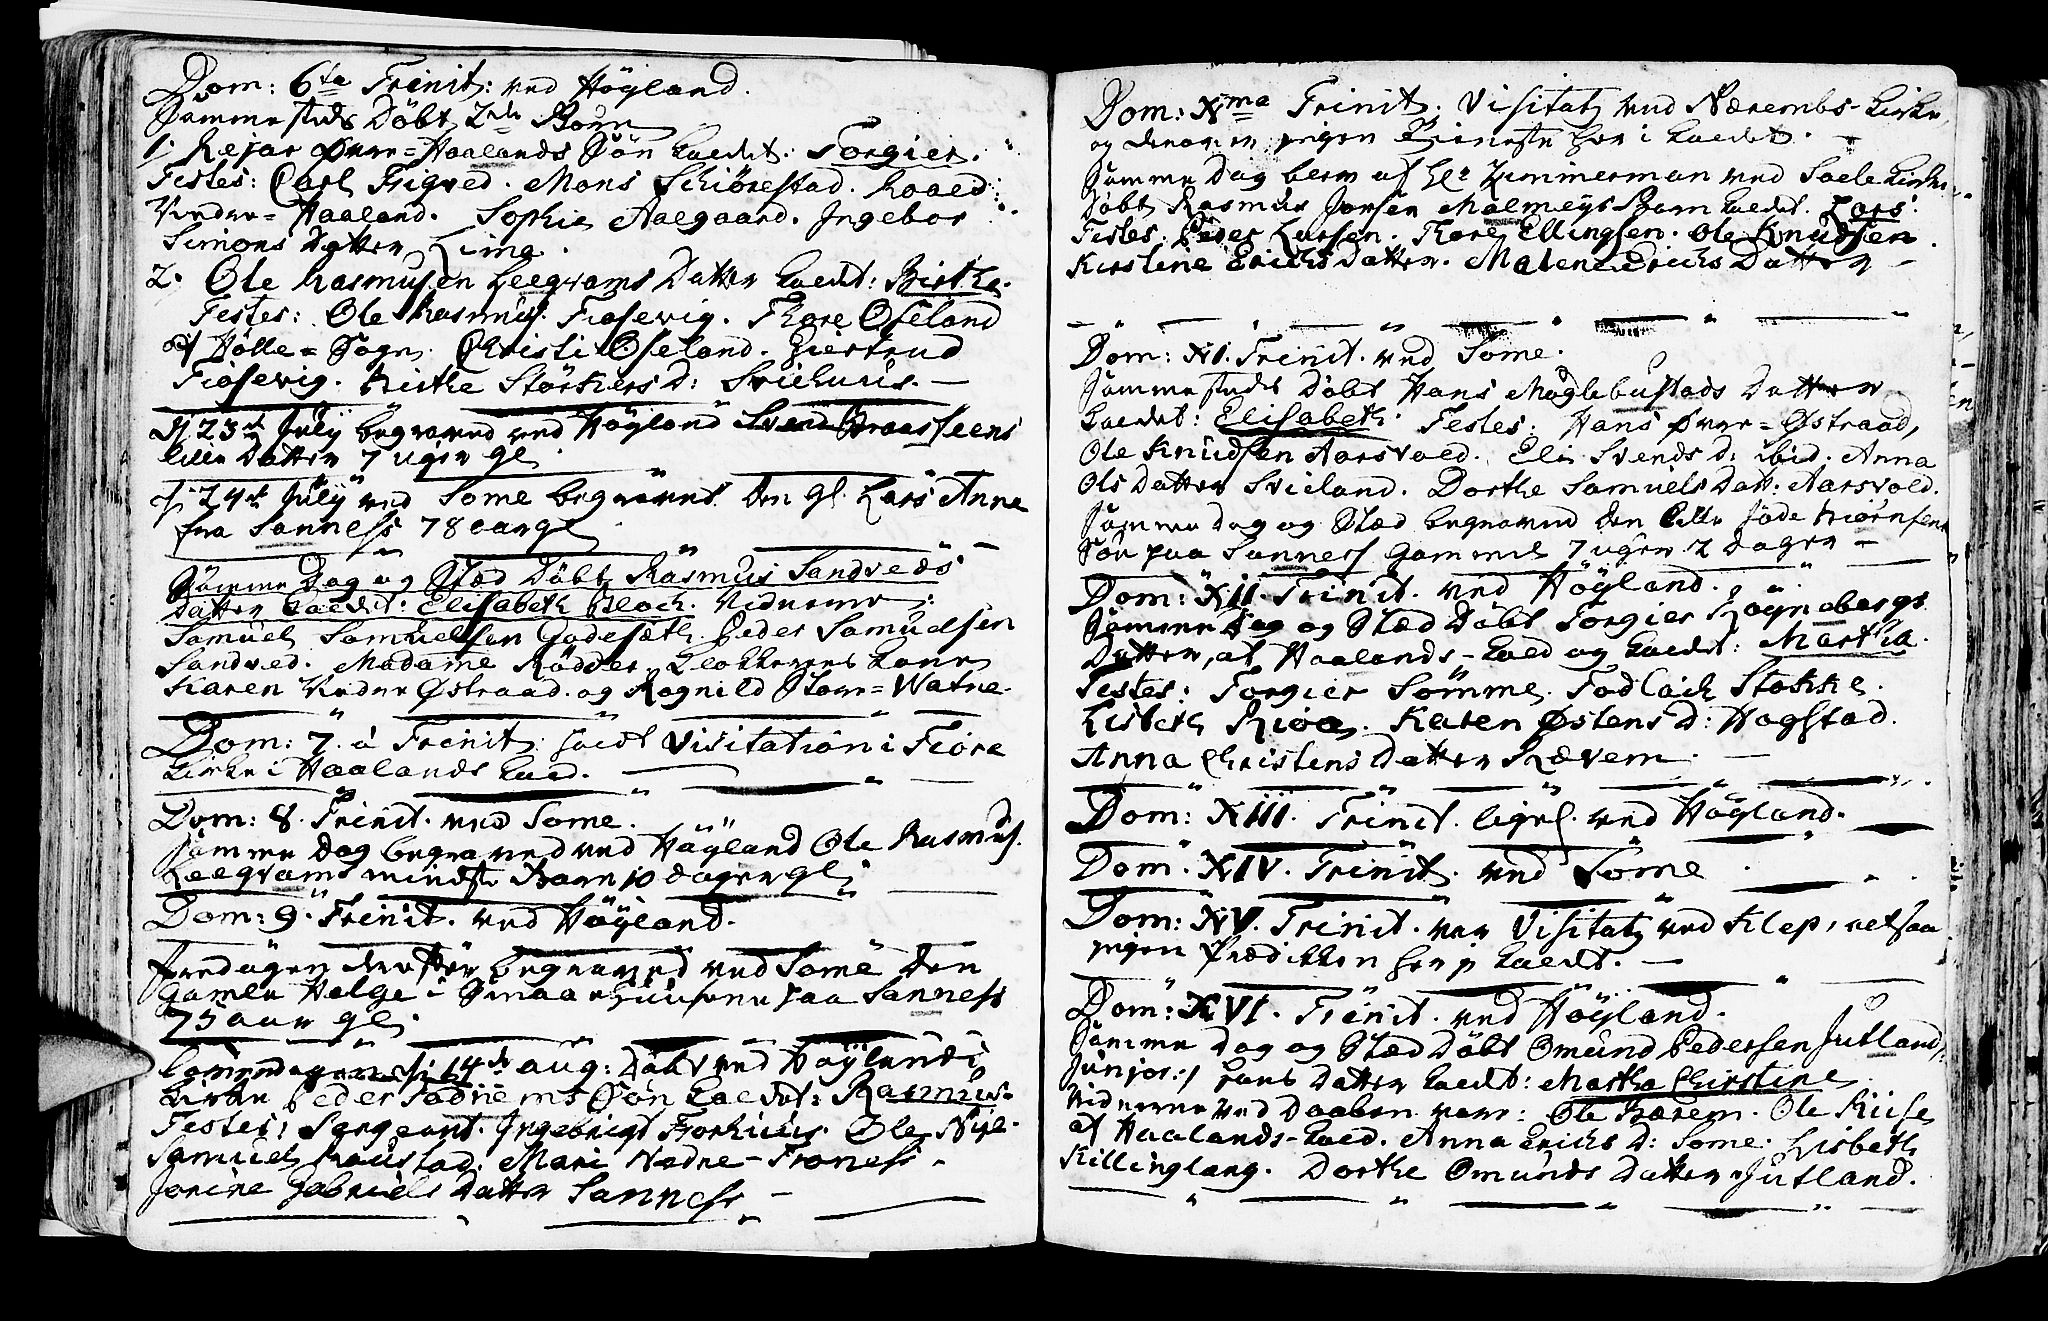 Dom: 6ta Trinit: ved Höyland.
Sammesteds Döbt 2de Börn
1. Rejar Øvre=Haalands Sön kaldet: Torgier.
Testes: Carl Trigved. Mons Schiørestad. Roald
Nedre=Haaland. Sophie Aalgaard. Ingebor
Simons Datter Lima.
2. Ole Rasmusen Leegrams Datter kaldt: Birthe.
Testes: Ole Rasmus. Fiosevig. Thore Oseland
af Hölle=Sogn. Christi Oseland. Giertrud
Fiosevig. Kirthe Störkers D: Svichuus.
D 23de July begraved ved Höyland Svend Braasteens
lille Datter 7 uger gl.
d. 24de July ved Some begravet den gl. Lars Anne
fra Sanness 78 aar gl
Samme Dag og Stæd Döbt Rasmus Sandveds
Datter kaldet: Elisabeth Bloch. Vidnerne:
Samuel Samuelsen Godesæth. Peder Samuelsen
Sandved. Madame Rödder, Klokkerens kone
Karen Nedre Østraad. og Rognild Store=Watne.
Dom: 7. a Trinit: holdt Visitation i Tiøre
Kirke i Haalands kald.
Dom: 8. Trinit. ved Some.
Samme Dag begraved ved Höyland Ole Rasmus.
Leegrams mindste Barn 10 dager gl.
Dom: 9. Trinit. ved Höyland.
Fredagen derefter begraved ved Some den
gamle Helge i Smaae Huusene paa Sanness
75 aar gl.
Lönerdagen d. 14de aug: Döbt ved Höylands
Kirke Peder Sodniems Sön kaldet: Rasmus.
Testes: Sergeant. Ingebrigt Forhuus. Ole Niel.
Samuel Raustad. Mari Nedre-Froness.
Jorine Gabriels Datter Sanness
Dom: Xma Trinit. Visitatz ved Nærembs-Kirke,
og derover ingen Tieneste her i kaldet.
Samme Dag berv af Hr Zimmerman ved Soele Kirke
Döbt Rasmus Jonsen Malmeys Barn kaldt. Lars.
Testes: Peder Larsen. Thore Ellingsen. Ole Knudsen.
Kirstine Erichs Datter. Malene Erichs Datter
Dom: XI. Trinit. ved Some.
Sammesteds Döbt Hans Møglebustads Datter
kaldet: Elisabeth. Testes: Hans Øvre=Østraad,
Ole Knudsen Aarsvold. Eli Svends D: ibid. Anna
Ols Datter Svieland. Dorthe Samuels Datt: Aarsvold.
Samme Dag og Stæd begraved den lille Jöde Biørnsens
Sön paa Sanness gammel 7 uger 2 Dager
Dom: XII. Trinit. ved Höyland.
Samme Dag og Stæd Döbt Torgier Røynebergs
Datter, af Haalands-kald og kaldt: Martha.
Testes: Torgier Sömme. Todlach Stokke.
Lisbeth Riøe. Karen Østens D: Hogstad.
Anna Christens Datter Rævem.
Dom: XIII. Trinit. ligel. ved Höyland.
Dom. XIV. Trinit. ved Some
Dom: XV. Trinit. var Visitatz ved Klep, altsaa
ingen Prædikken her i kaldt.
Dom: XVI. Trinit. ved Höyland.
Samme Dag og Stæd Döbt Omund Pedersen Jutland,
Junjor:/ hans Datter kaldt: Martha Christine
Vidnerne ved Daaben vare: Ole Bærem. Ole Riise
af Haalands-kald. Anna Erichs D: Some. Lisbeth
Killinglang. Dorthe Omunds Datter Jutland.